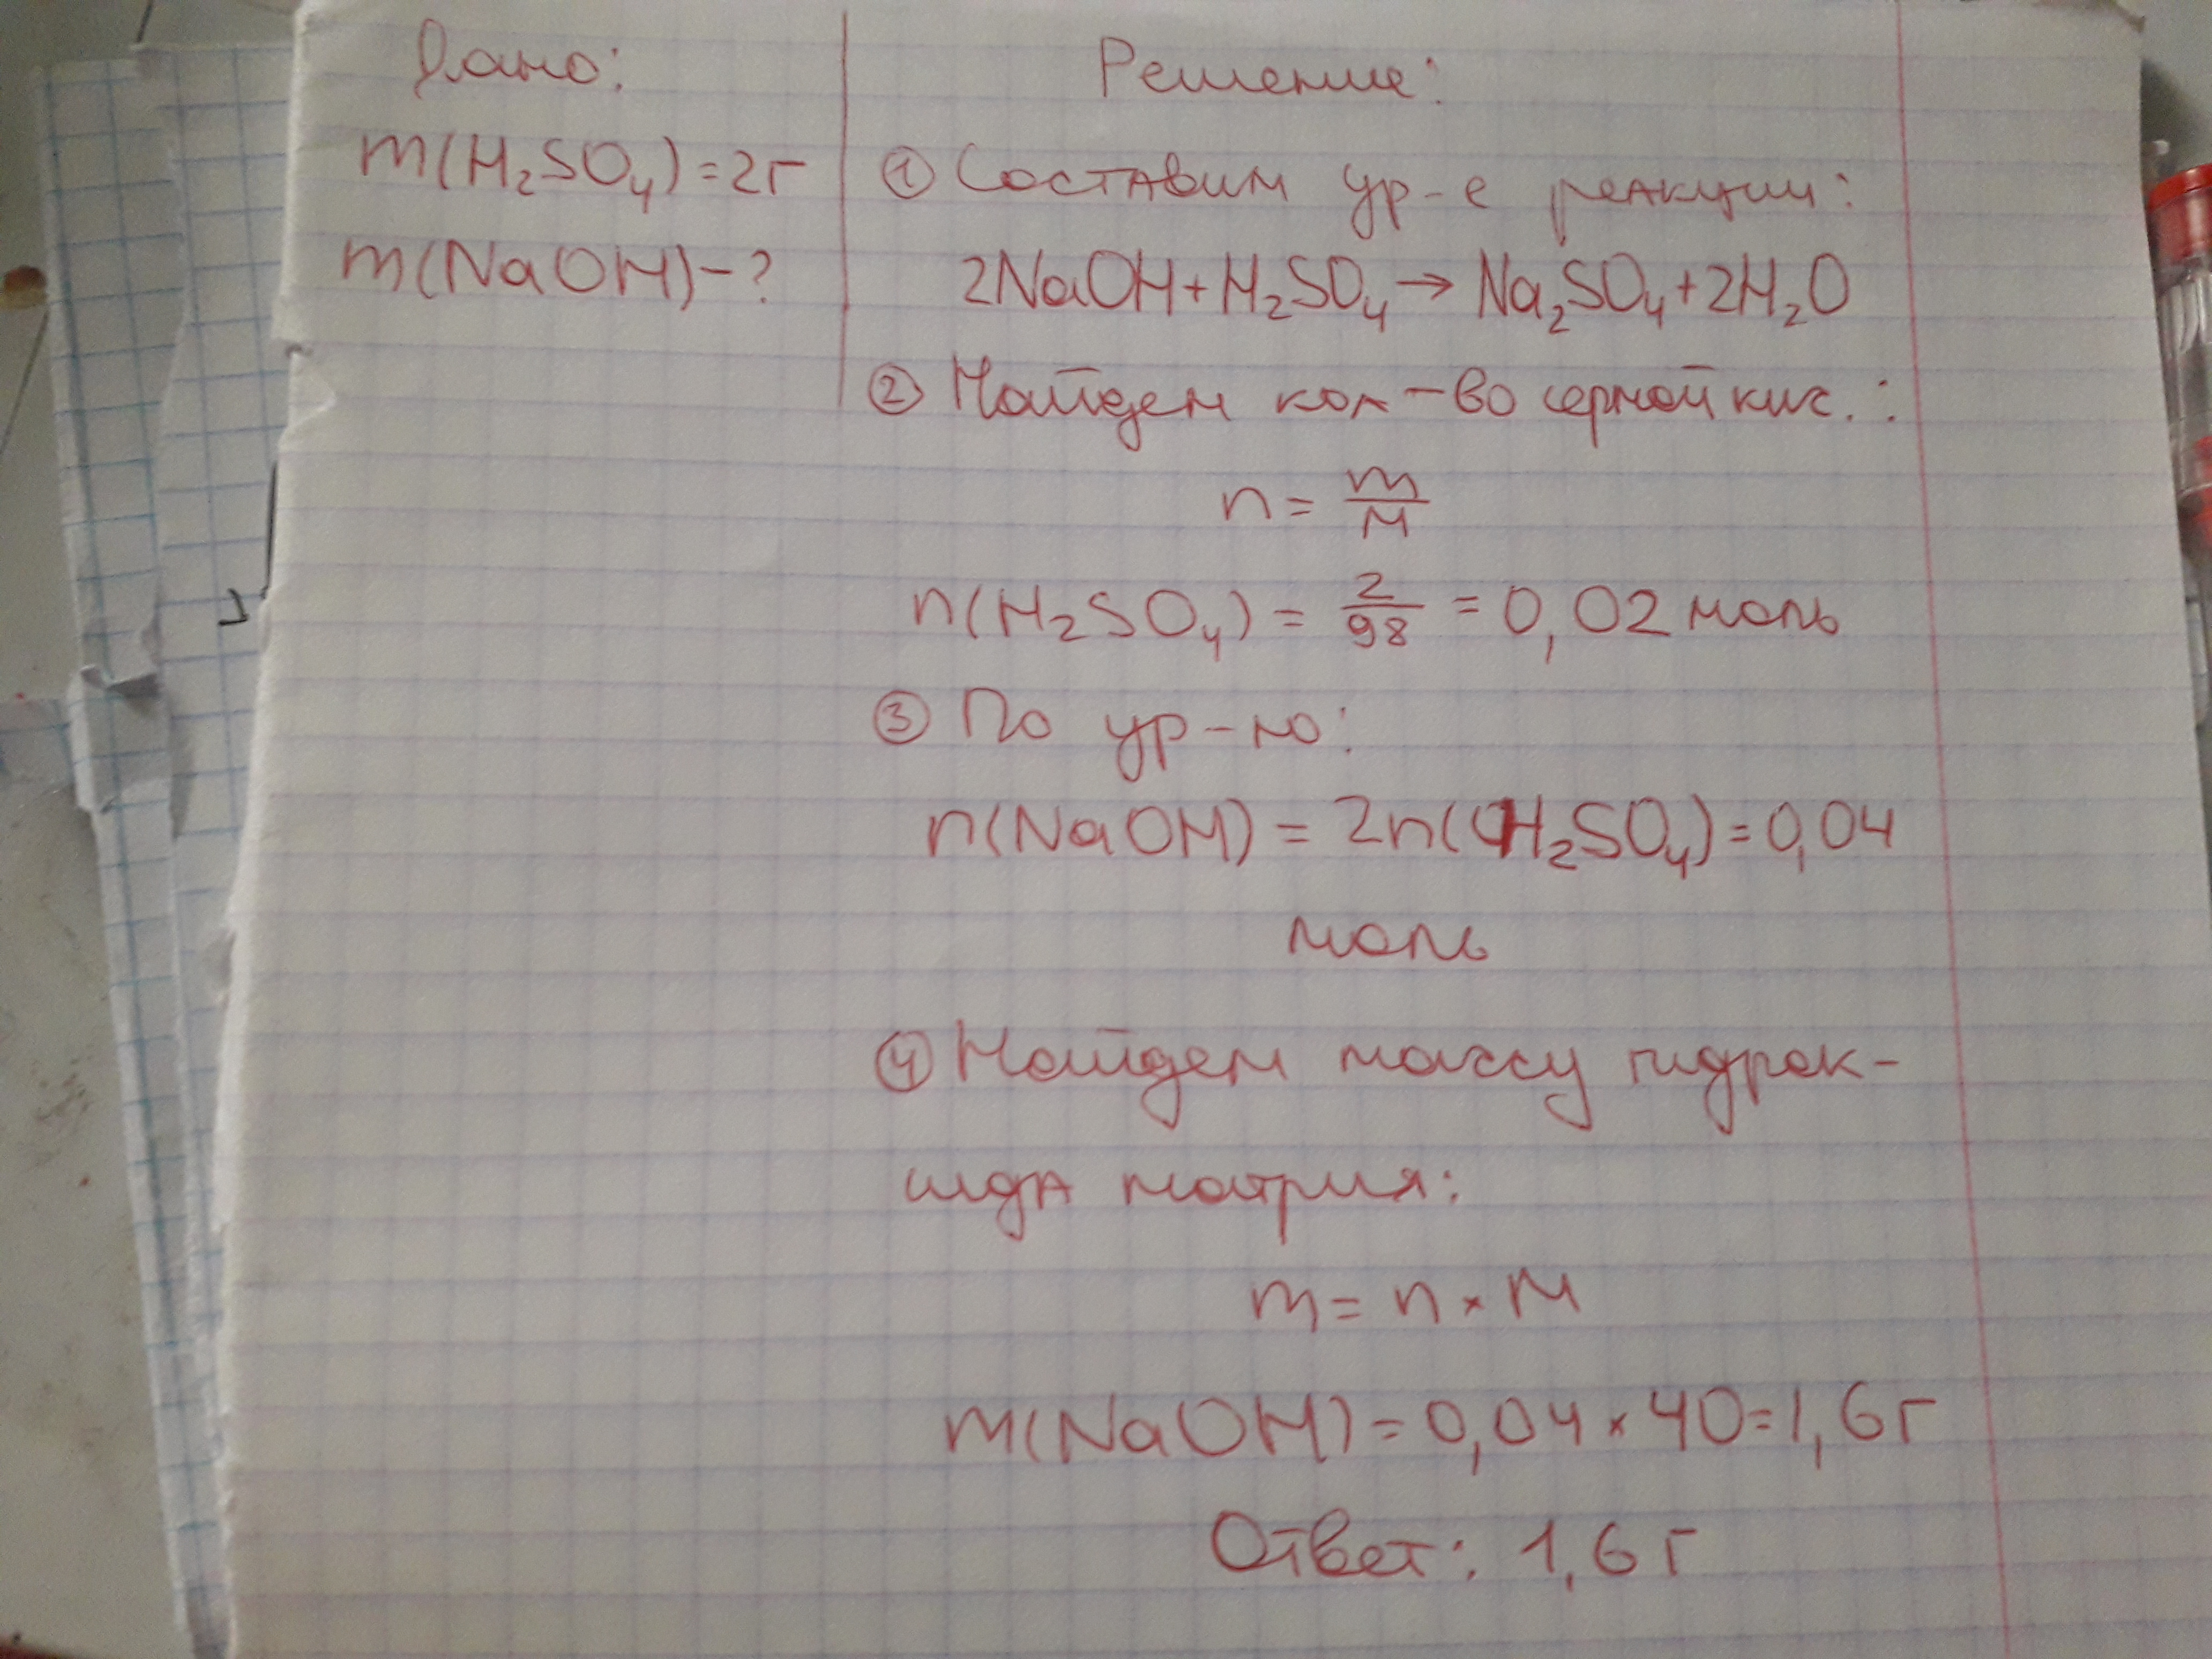 Дано:
m(H₂SO₄)=2г
m(NaOH)-?
Решение:
① Составим ур-е реакции:
2NaOH+H₂SO₄→Na₂SO₄+2H₂O
② Найдем кол-во серной кис.:
n = m/M
n(H₂SO₄) = 2/98 = 0,02 моль
③ По ур-ю:
n(NaOH) = 2n(H₂SO₄)=0,04
моль
④ Найдем массу гидрок-
сида натрия:
m = n × M
m(NaOH)=0,04×40=1,6г
Ответ: 1,6г